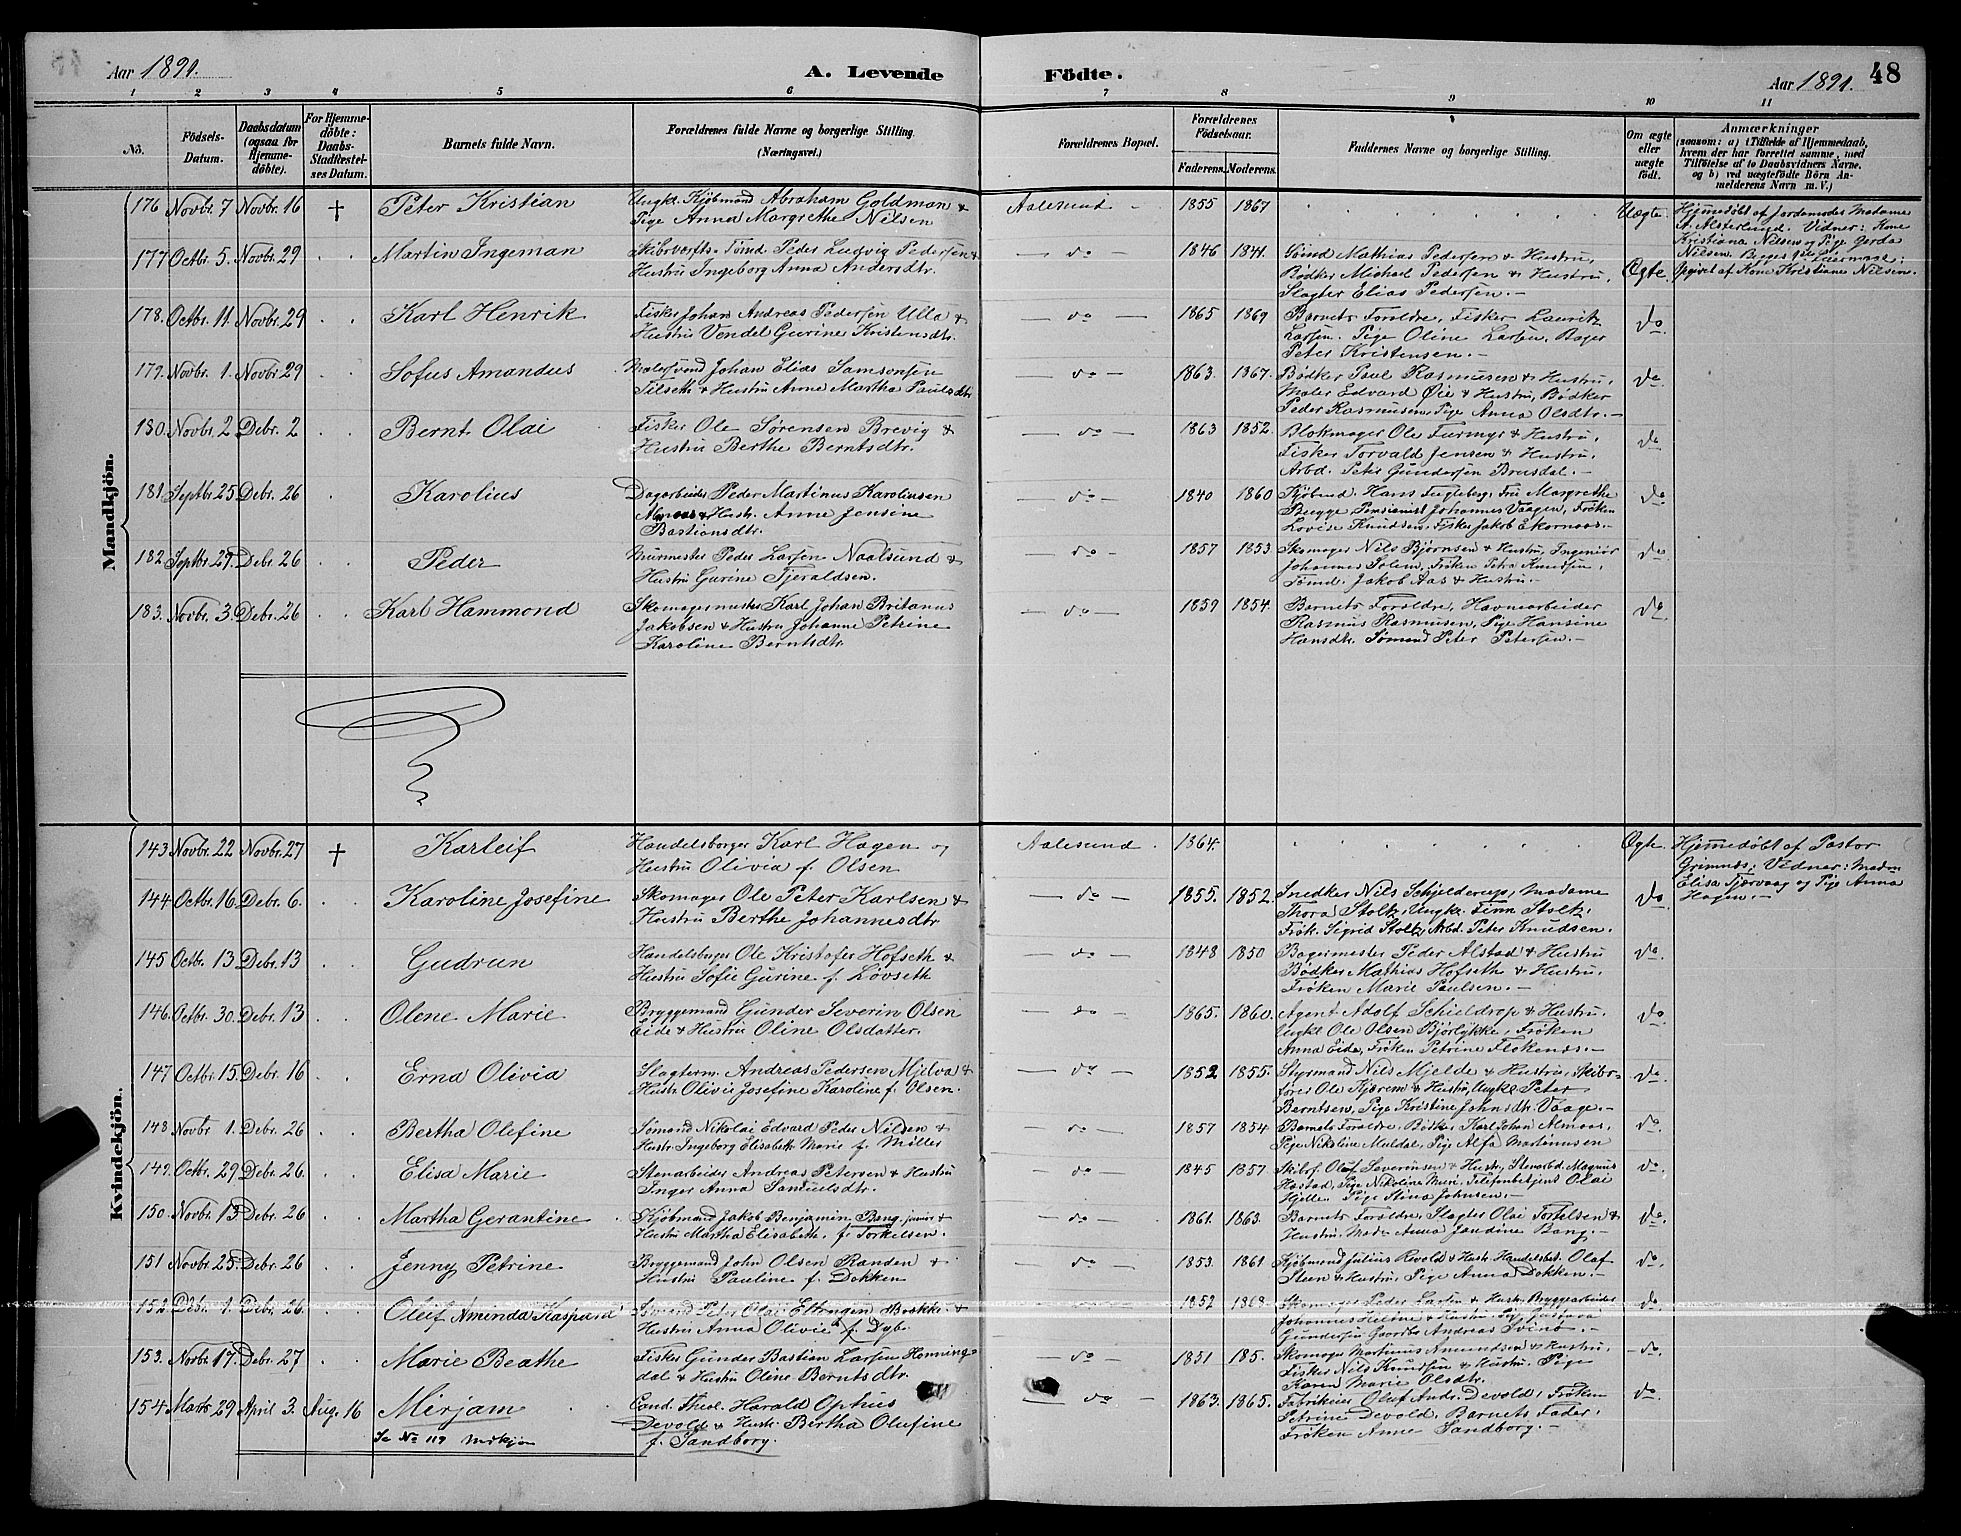 Aar 1891. A. Levende Födte. Aar 1891. 48
1 2 3 4 5 6 7 8 9 10 11
No. Födsels-Datum. Daabsdatum (ogsaa for Hjemmedöbte). For Hjemmedöbte: Daabs-Stadfæstelses Datum. Barnets fulde Navn. Forældrenes fulde Navne og borgerlige Stilling. (Næringsvei.) Forældrenes Bopæl. Forældrenes Födselsaar. Faderens. Moderens. Faddernes Navne og borgerlige Stilling. Om ægte eller uægte födt. Anmærkninger (saasom: a) i Tilfælde af Hjemmedaab, hvem der har forrettet samme, med Tilföielse af to Daabsvidners Navne, og b) ved uægtefödte Börn Anmelderens Navn m. V.)
Mandkjön.
176 Novbr. 7 Novbr. 16 † Peter Kristian Ungk. Kjøbmand Abraham Goldman & Aalesund - 1855 1867 Uægte. Hjemmedøbt af Jordemoder Madame
Pige Anna Margrethe Nilsen A. Alsterlund. Vidner: Kone
Kristiana Nilsen og Pige Gerda
Nilsen. Begges 1ste Leiermaal:
Opgivet af Kone Kristiane Nilsen.
177 Octbr. 5. Novbr. 29 Martin Ingeman Skibsværfts-Tømd. Peder Ludvig Pedersen & do 1846 1841. Tømd Mathias Pedersen & Hustru,
Hustru Ingeborg Anna Andersdtr. Bødker Michael Pedersen & Hustru, Ægte.
Slagter Elias Pedersen. -
178. Octbr. 11. Novbr. 29 Karl Henrik Fisker Johan Andreas Pedersen Ulla & do 1865 1869 Barnets Forældre, Fisker Lauritz do
Hustru Vendel Gurine Kristensdtr. Larsen. Pige Oline Larsen, Bager
Peter Kristensen. -
179. Novbr. 1. Novbr. 29 Sofus Amandus Malersvend Johan Elias Samsonsen do 1863. 1867. Bødker Paul Rasmusen & Hustru, do
Tilseth & Hustru Anne Martha Paulsdtr Maler Edvard Øie & Hustru, Bødker
Peder Rasmusen, Pige Anna Olsdtr. -
180. Novbr. 2. Debr. 2 Bernt Olai Fisker Ole Sørensen Brevig & do 1863 1852. Blokmager Ole Furmyr & Hustru, do
Hustru Berthe Berntsdtr. Fisker Torvald Jensen & Hustru,
Arbd. Peter Gundersen Brusdal. -
181. Septbr. 25. Debr. 26 Karolius Dagarbeider Peder Martinus Karoliusen do 1840 1860 Kjøbmd. Hans Fugleberg, Fru Margrethe do
& Hustr. Anne Jensine Bugge Pensionist Johannes Vaagen, Frøken
Bastiansdtr. Lovise Knudsen, Fisker Jakob Ekornaas. -
182. Septbr. 27. Debr. 26 Peder Murmester Peder Larsen Naalsund & do 1857 1853. Skomager Nils Bjørnsen & Hustru, Ingeniør do
Hustru Gurine Tjeraldsen. Johannes Solem, Frøken Petra Knudsen,
Tømd. Jakob Aas & Hustru. -
183. Novbr. 3. Debr. 26 Karl Hammond Skomagermester Karl Johan Britanus do 1859 1854. Barnets Forældre, Havnearbeider do
Jakobsen & Hustru Johanne Petrine Rasmus Rasmusen, Pige Hansine
Karoline Berntsdtr. Hansdtr. Sømand Peter Petersen. -
Kvindekjön.
143 Novbr. 22 Novbr. 27 † Karleif Handelsborger Karl Hagen og Aalesund 1864. Ægte Hjemmedøbt af Pastor
Hustru Olivia f. Olsen Grimnæs: Vidner: Madm
Elisa Tjærvaag og Pige Anna
Hagen. -
144 Octbr. 16. Debr. 6. Karoline Josefine Skomager Ole Peter Karlsen & do 1855. 1852. Snedker Nils Schjelderup, Madame do
Hustru Berthe Johannesdtr Thora Stoltz, Ungk. Finn Stoltz,
Frøk. Sigrid Stoltz, Arbd. Peter Knudsen.
145 Octbr. 13. Debr. 13 Gudrun Handelsborger Ole Kristofer Hofseth & do 1848 1850 Bagermester Peder Alstad & Hustru do
Hustru Sofie Gurine f. Løvseth Bødker Mathias Hofseth & Hustru,
Frøken Marie Paulsen. -
146. Octbr. 30. Debr. 13 Olene Marie Bryggemand Gunder Severin Olsen do 1865. 1860. Agent Adolf Schieldrop & Hustru. do
Eide & Hustru Oline Olsdatter. Ungk. Ole Olsen Bjørlykke, Frøken
Anna Eide, Frøken Petrine Flokenæs. -
147 Octbr. 15. Debr. 16 Erna Olivia Slagterm. Andreas Pedersen Mjelva & do 1852 1855. Styrmand Nils Mjelde & Hustru, Skibs- do
Hustr Olivie Josefine Karoline f. Olsen. fører Ole Kjærem & Hustru, Ungk. Peter
Berntsen, Pige Kristine Johnsdtr. Vaage. -
148 Novbr 1. Debr. 26 Bertha Olefine Sømand Nikolai Edvard Peder Nilsen & do 1857 1854 Barnets Forældre, Bødker Karl Johan Almaas, do
Hustr. Ingeborg Elisabeth Marie f. Miller Pige Nikoline Muldal, Pige Alfa Martinusen
149. Octbr. 29 Debr. 26. Elisa Marie Stenarbeider Andreas Petersen & Hustru do 1845 1857 Skibsf. Oluf Severinsen & Hustr, Stenarbd. Magnus do
Inger Anna Samuelsdtr. Hæstad, Pige Nikoline Muri. Telefonbetjent Olai
Hjelle. Pige Stina Johnsen. -
150. Novbr. 13. Debr. 26 Martha Gerantine Kjøbmand Jakob Benjamin Bang, junior & do 1861. 1863. Barnets Forældre, Slagter Olai Torkelsen & do
Hustru Martha Elisabeth. f. Torkilsen. Hustru. Anna Jandine Bang. -
151 Novbr. 25. Debr. 26 Jenny Petrine Bryggemand John Olsen Randen & do 1853. 1861 Kjøbmand Julius Revold & Hustr. Handelsbet. Olaf do
Hustru Pauline f. Dokken Steen & Hustru, Pige Anna Dokken. -
152 Debr. 1. Debr. 26. Oleif Aminda Kaspara Sømand Peter Olai & 1852 1868 Skomager Peder Larsen & Hustr. Bryggearbeider do
Hustru Anna Olivie f. Dyb. Johannes & Hustru. Pige
Gundersen Andreas Svinø. -
153. Novbr. 17. Debr. 27 Marie Beathe Fisker Gunder Bastian Larsen Honning- do 1851 185. Skomager Martinus Amundsen & Hustru, do
dal & Hustru Oline Berntsdtr. Fisker Nils Knudsen & Hustru. Pige
Karen Marie Olsdtr.
154 Marts 29 April 3. Aug. 16 Mirjam Cand. Theol. Harald Ophus do 1863. 1865. Fabrikeier Oluf Andr. Devold, Frøken do
Se No 119 Mdkjøn Devold & Hustr. Bertha Olufine Petrine Devold. Barnets Fader,
f. Sandborg. Frøken Anne Sandborg. -